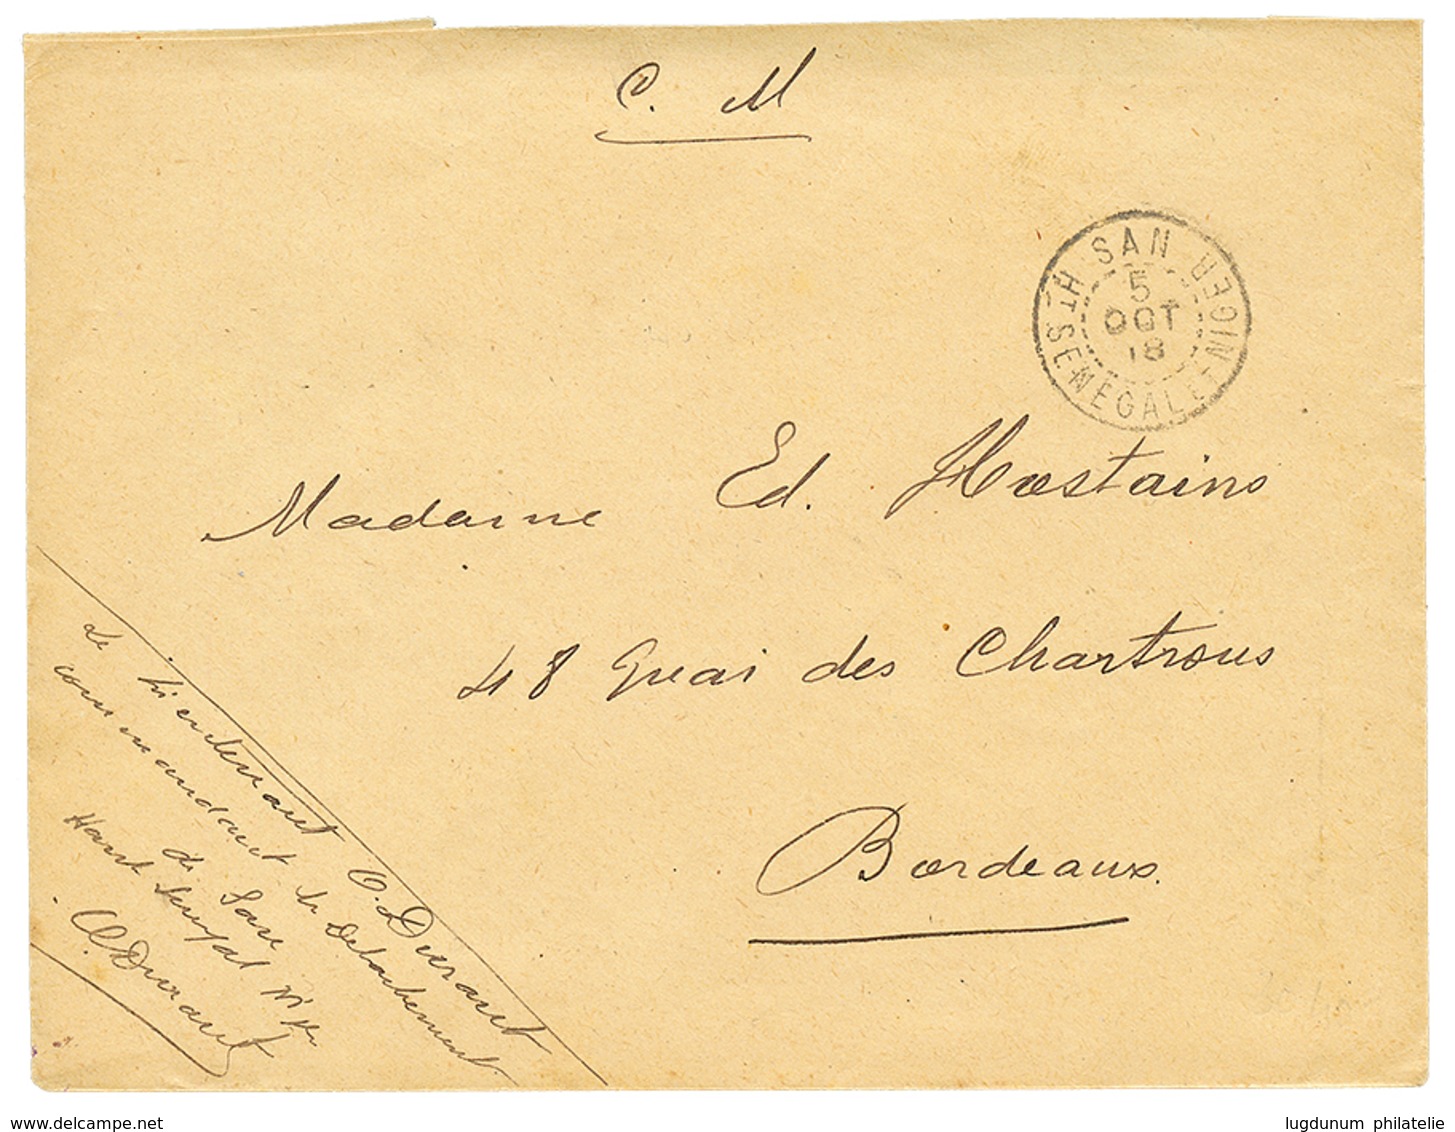 C. M
SAN
HT SENEGAL ET NIGER
5
OCT
18
Madame Ed. Hostains
48 Quai des Chartrons
Bordeaux
Le Lieutenant O. Durant
commandant le Detachement
de San
Haut Senegal Niger
O Durant
www.delcampe.net
lugdunum philatelie